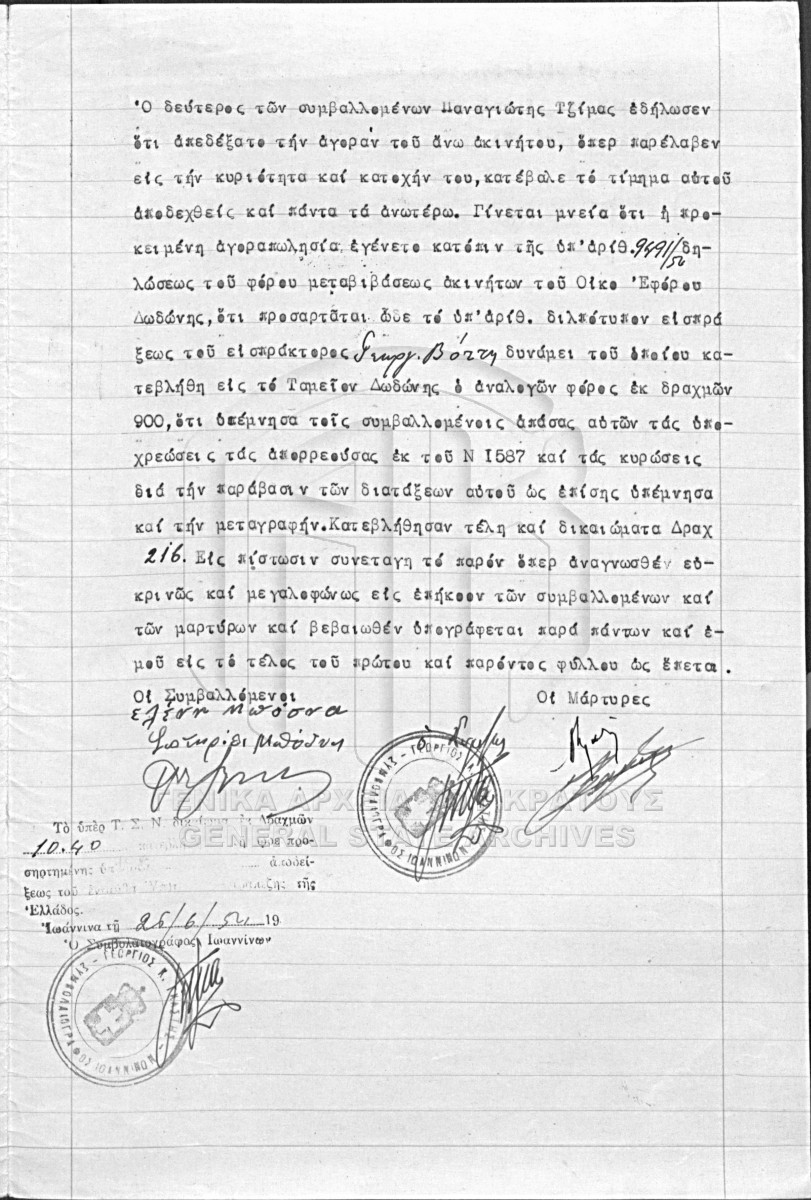 Ὁ δεύτερος τῶν συμβαλλομένων Παναγιώτης Τζίμας ἐδήλωσεν
ὅτι ἀπεδέξατο τήν ἀγοράν τοῦ ἄνω ἀκινήτου, ὅπερ παρέλαβεν
εἰς τήν κυριότητα καί κατοχήν του, κατέβαλε τό τίμημα αὐτοῦ
ἀποδεχθείς καί πάντα τά ἀνωτέρω. Γίνεται μνεία ὅτι ἡ προ-
κειμένη ἀγοραπωλησία ἐγένετο κατόπιν τῆς ὑπ'ἀριθ. 9491/54 δη-
λώσεως τοῦ φόρου μεταβιβάσεως ἀκινήτων τοῦ Οἰκο Ἐφόρου
Δωδώνης, ὅτι προσαρτᾶται ὧδε τό ὑπ'ἀριθ. διλπότυπον εἰσπρά
ξεως τοῦ εἰσπράκτορος Γεωργ. Βόττη δυνάμει τοῦ ὁποίου κα-
τεβλήθη εἰς τό Ταμεῖον Δωδώνης ὁ ἀναλογῶν φόρος ἐκ δραχμῶν
900, ὅτι ὑπέμνησα τοῖς συμβαλλομένοις ἁπάσας αὐτῶν τάς ὑπο-
χρεώσεις τάς ἀπορρεούσας ἐκ τοῦ Ν I587 καί τάς κυρώσεις
διά τήν παράβασιν τῶν διατάξεων αὐτοῦ ὡς ἐπίσης ὑπέμνησα
καί τήν μεταγραφήν. Κατεβλήθησαν τέλη καί δικαιώματα Δραχ
216. Εἰς πίστωσιν συνεταγη τό παρόν ὅπερ ἀναγνωσθέν εὐ-
κρινῶς καί μεγαλοφώνως εἰς ἐπήκοον τῶν συμβαλλομένων καί
τῶν μαρτύρων καί βεβαιωθέν ὑπογράφεται παρά πάντων καί ἐ-
μοῦ εἰς τό τέλος τοῦ πρώτου καί παρόντος φύλλου ὡς ἕπεται.
Οἱ Συμβαλλόμενοι Οἱ Μάρτυρες
Ελένη Μπόσνα
ΓΕΝΙΚΑ ΑΡΧΕΙΑ ΤΟΥ ΚΡΑΤΟΥΣ
GENERAL STATE ARCHIVES
Τὸ ὑπὲρ Τ. Σ. Ν Δραχμῶν
10.40 ὧδε προ-
σηρτημένης ἀποδεί-
ξεως τοῦ τῆς
Ἑλλάδος.
Ἰωάννινα τῇ 26/6/54 19
Ὁ Συμβολαιογράφος Ἰωαννίνων